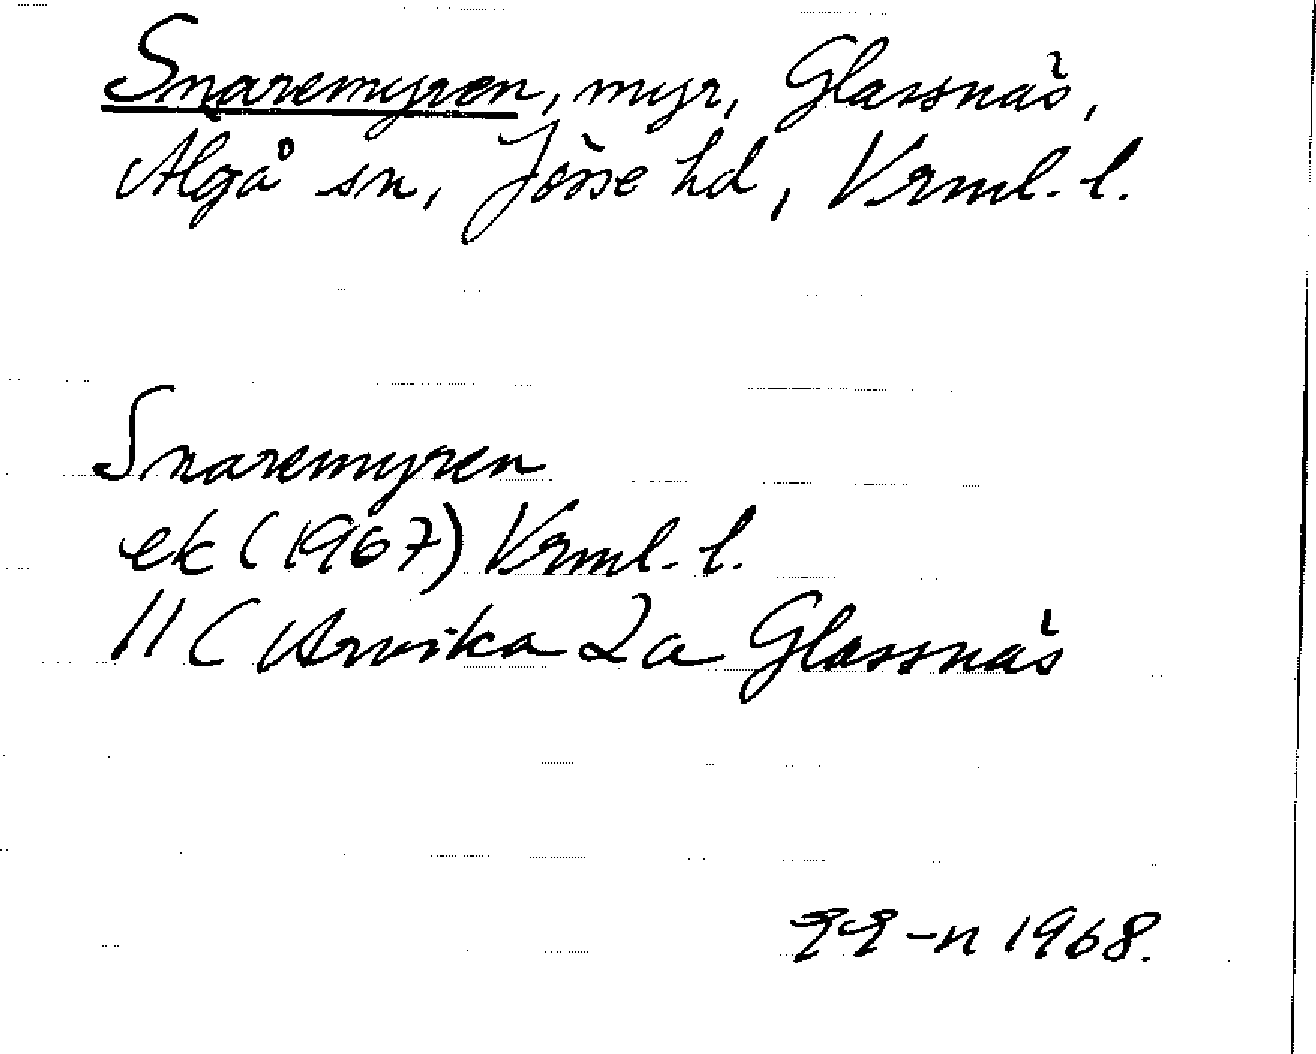 Snaremyren, myr, Glassnäs,
Älgå sn, Jösse hd, Vrml. l.
Snaremyren
ek (1967) Vrml. l.
11 C Arvika 2a Glassnäs
-n 1968.